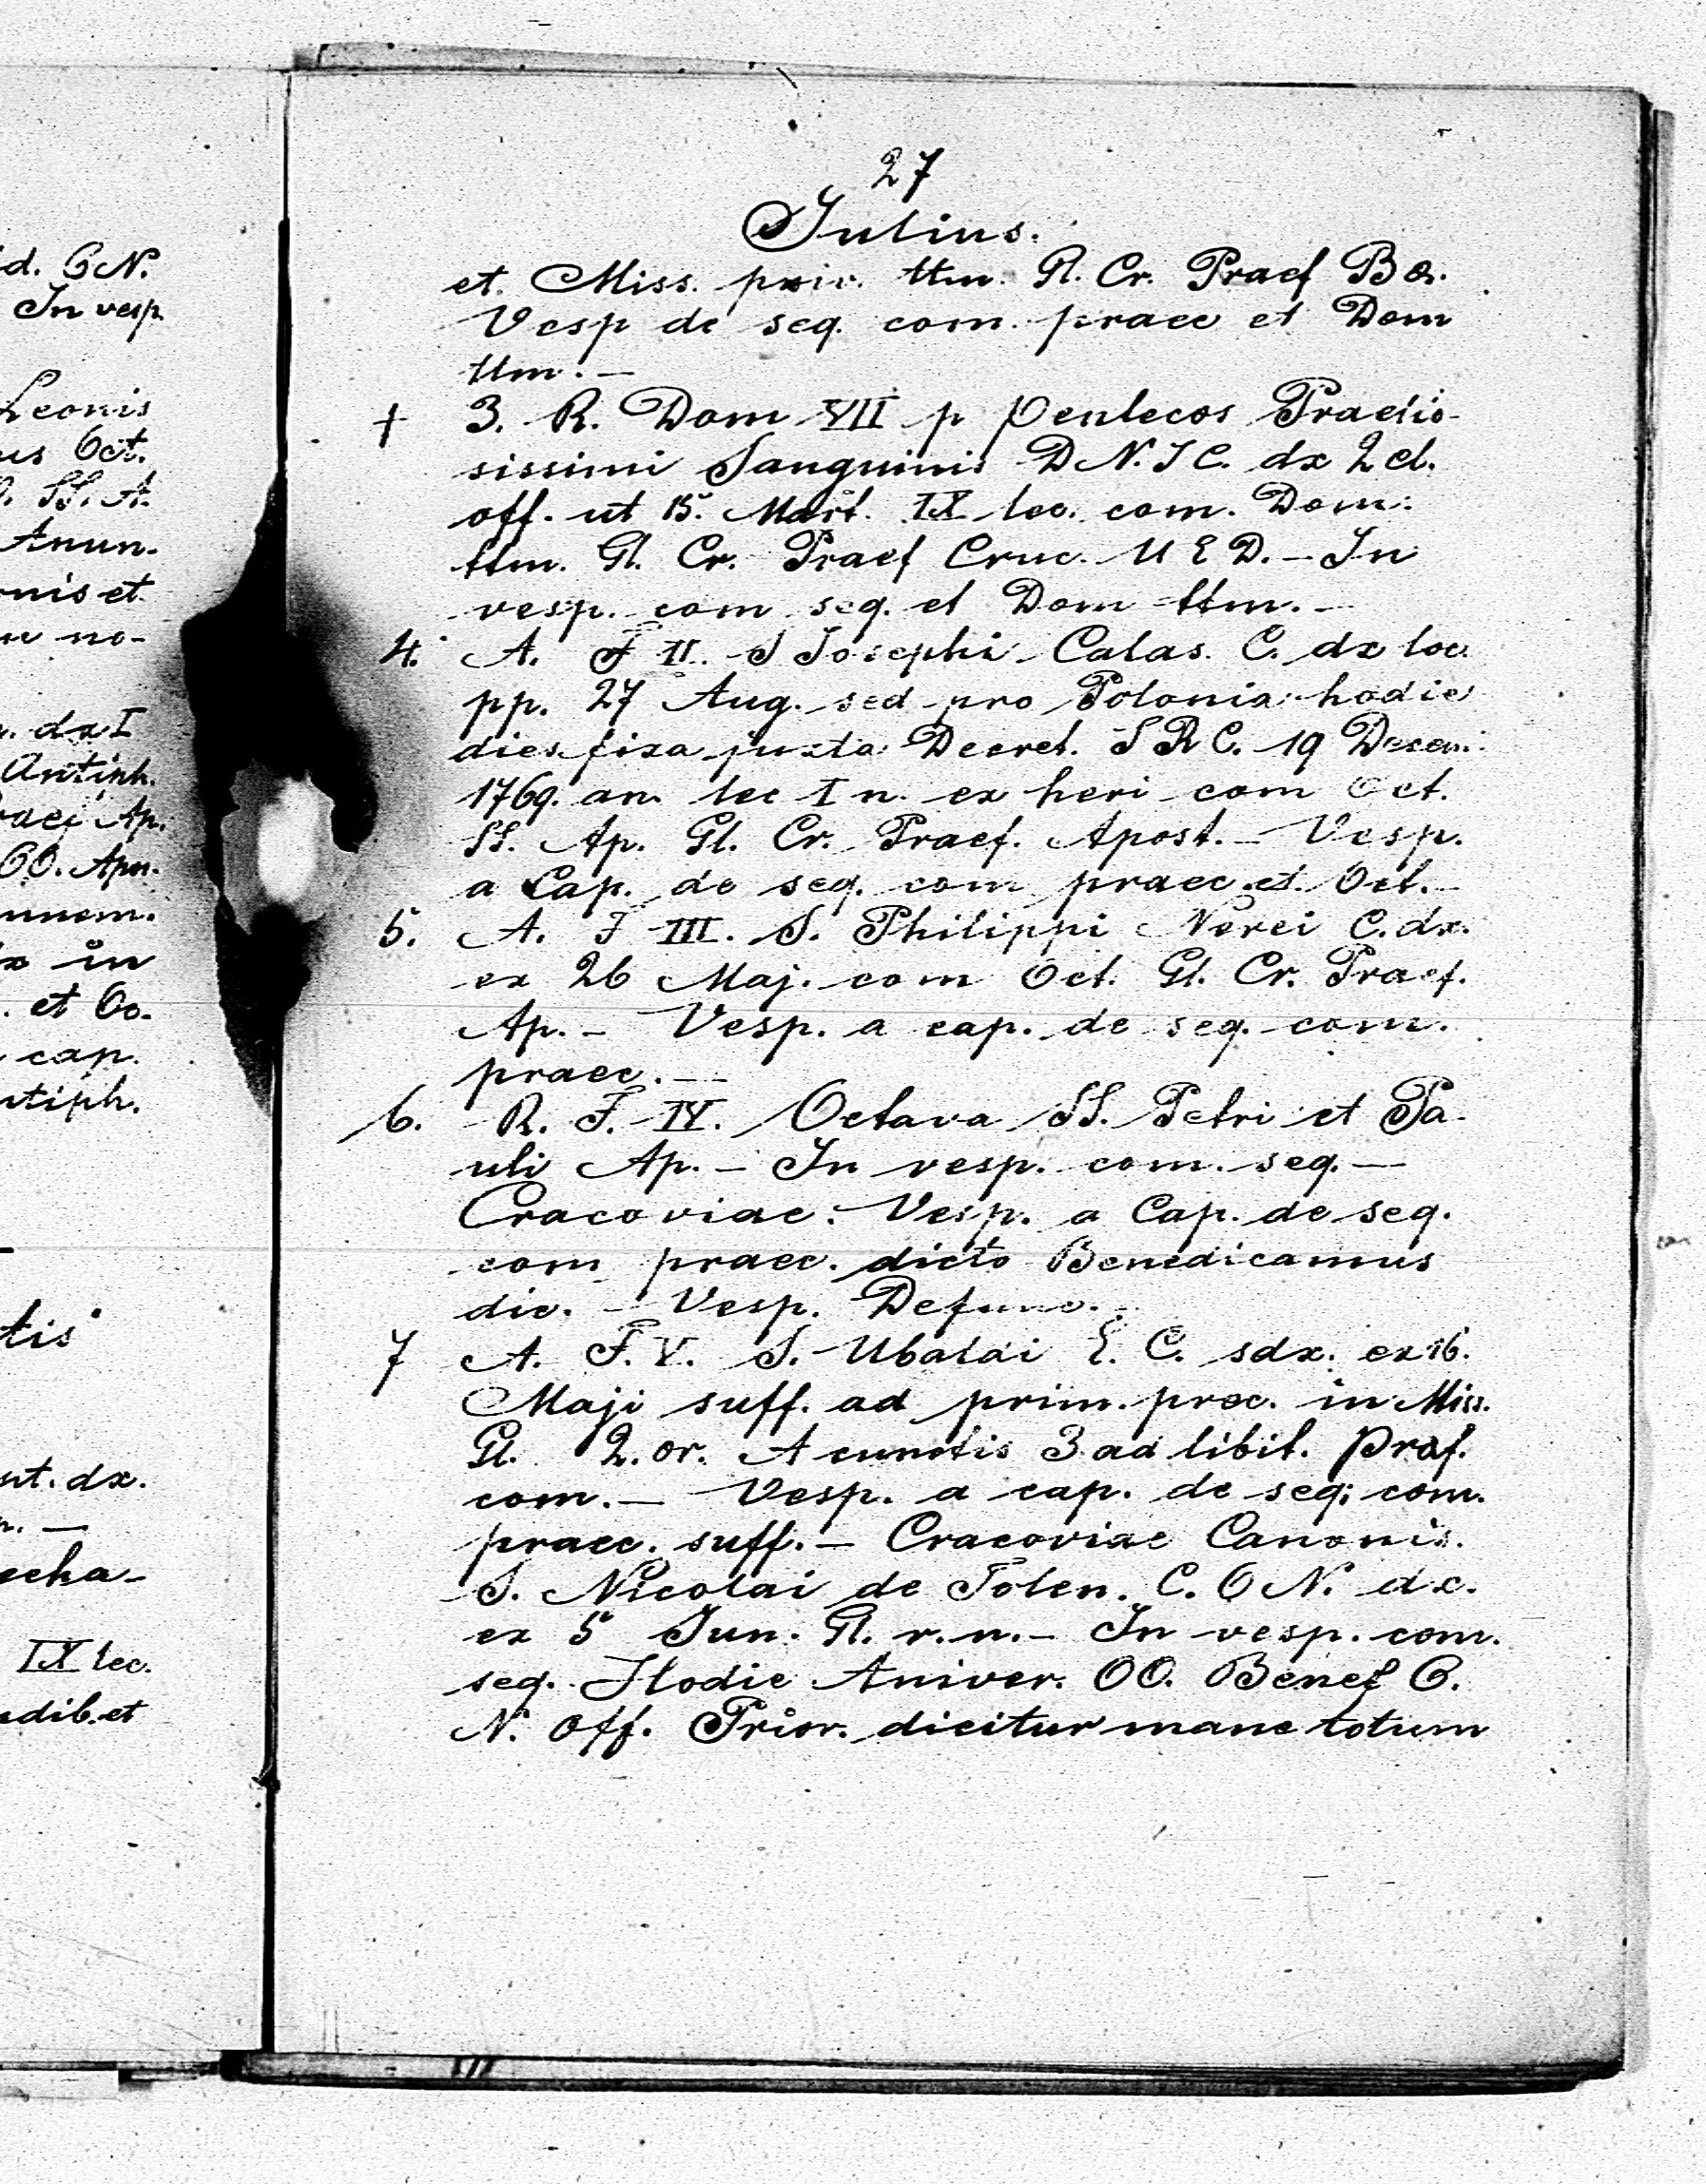 d. ON.
In vesp.
Leonis
us Oct.
SS. A.
Anun.
nis et
no-
dx I
Antiph.
Ap.
OO. Apu.
mnem.
in
. et Oo.
cap.
ntiph.
tis
nt. dx.
echa-
IX lec.
dib. et
27
Julius.
et Miss. priv. ttm. Gl. Cr. Praef B
Vesp de seq. com. praec et Dom
ttm. —
† 3. R. Dom VII p Pentecos Praetio-
sissimi Sanguinis D N. J C. dx 2 cl.
off. ut 15. Mart. IX lec. com. Dom.
ttm. Gl. Cr. Praef Cruc. U E D. — In
vesp. com seq. et Dom ttm. —
4. A. F II. S Josephi Calas. C. dx loc.
pp. 27 Aug. sed pro Polonia hodie
dies fixa juxta Decret. S R C. 19 Decem.
1769. an. lec I n. ex heri com Oct.
SS. Ap. Gl. Cr. Praef. Apost. — Vesp.
a Cap. de seq. com praec. et Oct. —
5. A. F III. S. Philippi Nerei C. dx.
ex 26 Maj. com Oct. Gl. Cr. Praef.
Ap. — Vesp. a cap. de seq. com.
praec. —
6. R. F. IV. Octava SS. Petri et Pa-
uli Ap. — In vesp. com. seq. —
Cracoviae. Vesp. a Cap. de seq.
com praec. dicto Benedicamus
dic. — Vesp. Defunc. —
7 A. F. V. S. Ubaldi E. C. sdx. ex 16.
Maji suff. ad prim. prec. in Miss.
Gl. 2. or. A cunctis 3 ad libit. Praf.
com. — Vesp. a cap. de seq; com.
praec. suff. — Cracoviae Canonis.
S. Nicolai de Tolen. C. O N. dx.
ex 5 Jun. Gl. r. n. — In vesp. com.
seq. Hodie Aniver. OO. Benef O.
N. Off. Prior. dicitur mane totum